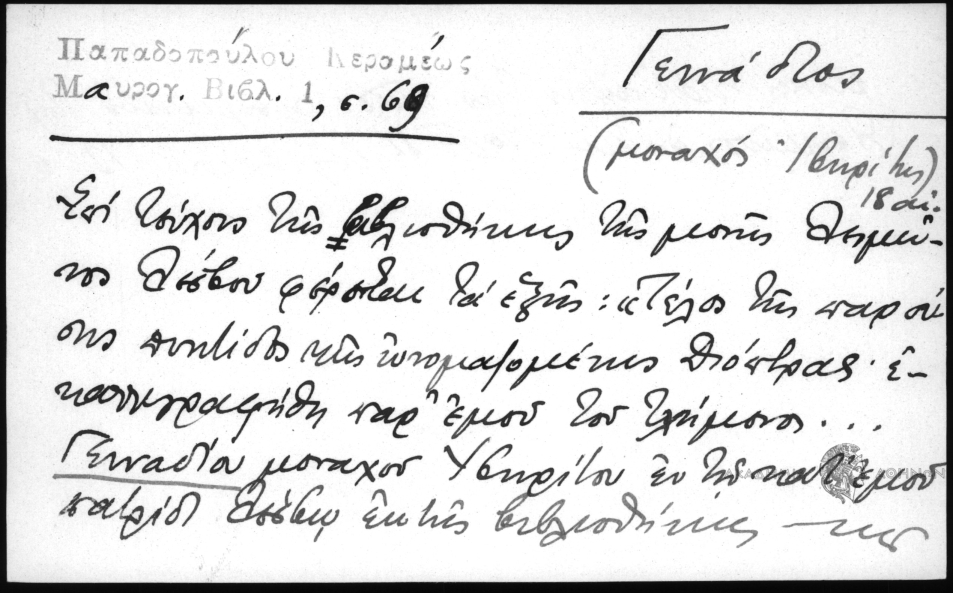 Παπαδοπούλου Κεραμέως
Μαυρογ. Βιβλ. 1, σ. 69
Γεννάδιος
(μοναχός Ιβηρίτης)
18 αἰ.
Ἐπί τεύχους τῆς βιβλιοθήκης τῆς μονῆς Λειμῶ-
νος Λέσβου φέρεται τά ἑξῆς: «Τέλος τῆς παρού
σης πυκτίδος τῆς ὠνομαζομένης Διόπτρας· ἐ-
παρ' ἐμοῦ τοῦ τλήμονος...
Γενναδίου μοναχοῦ Ὑβηρίτου ἐν τῇ κατ' ἐμοῦ
πατρίδι Λέσβῳ, ἐκ τῆς βιβλιοθήκης